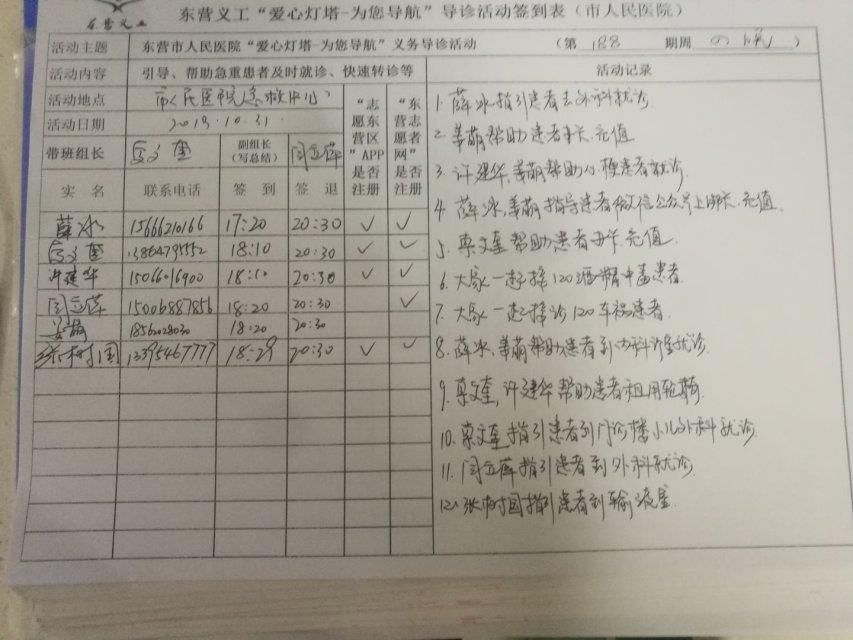 东营义工
东营义工“爱心灯塔-为您导航”导诊活动签到表（市人民医院）
活动主题 东营市人民医院“爱心灯塔-为您导航”义务导诊活动 （第 188 期周 四 晚）
活动内容 引导、帮助急重患者及时就诊、快速转诊等 活动记录
活动地点 市人民医院急救中心
活动日期 2019.10.31
带班组长 副组长（写总结） 闫立萍
“志愿东营区”APP是否注册
“东营志愿者网”是否注册
实 名 联系电话 签 到 签 退
薛冰 15666210166 17:20 20:30 ✓ ✓
18:10 20:30 ✓ ✓
许建华 15066016900 18:10 20:30 ✓ ✓
闫立萍 15006887856 18:20 20:30 ✓
姜萌 18562028030 18:20 20:30
张树国 13395467777 18:29 20:30 ✓ ✓
1. 薛冰指引患者去外科就诊.
2. 姜萌帮助患者办卡.充值
3. 许建华,姜萌帮助心梗患者就诊.
4. 薛冰,姜萌指导患者微信公众号上绑卡.充值.
5. 文奎帮助患者办卡.充值.
6. 大家一起接120酒精中毒患者
7. 大家一起接诊120车祸患者.
8. 薛冰,姜萌帮助患者到内科诊室就诊.
9. 文奎,许建华帮助患者租用轮椅.
10. 文奎指引患者到门诊楼小儿外科就诊.
11. 闫立萍指引患者到外科就诊.
12. 张树国指引患者到输液室.